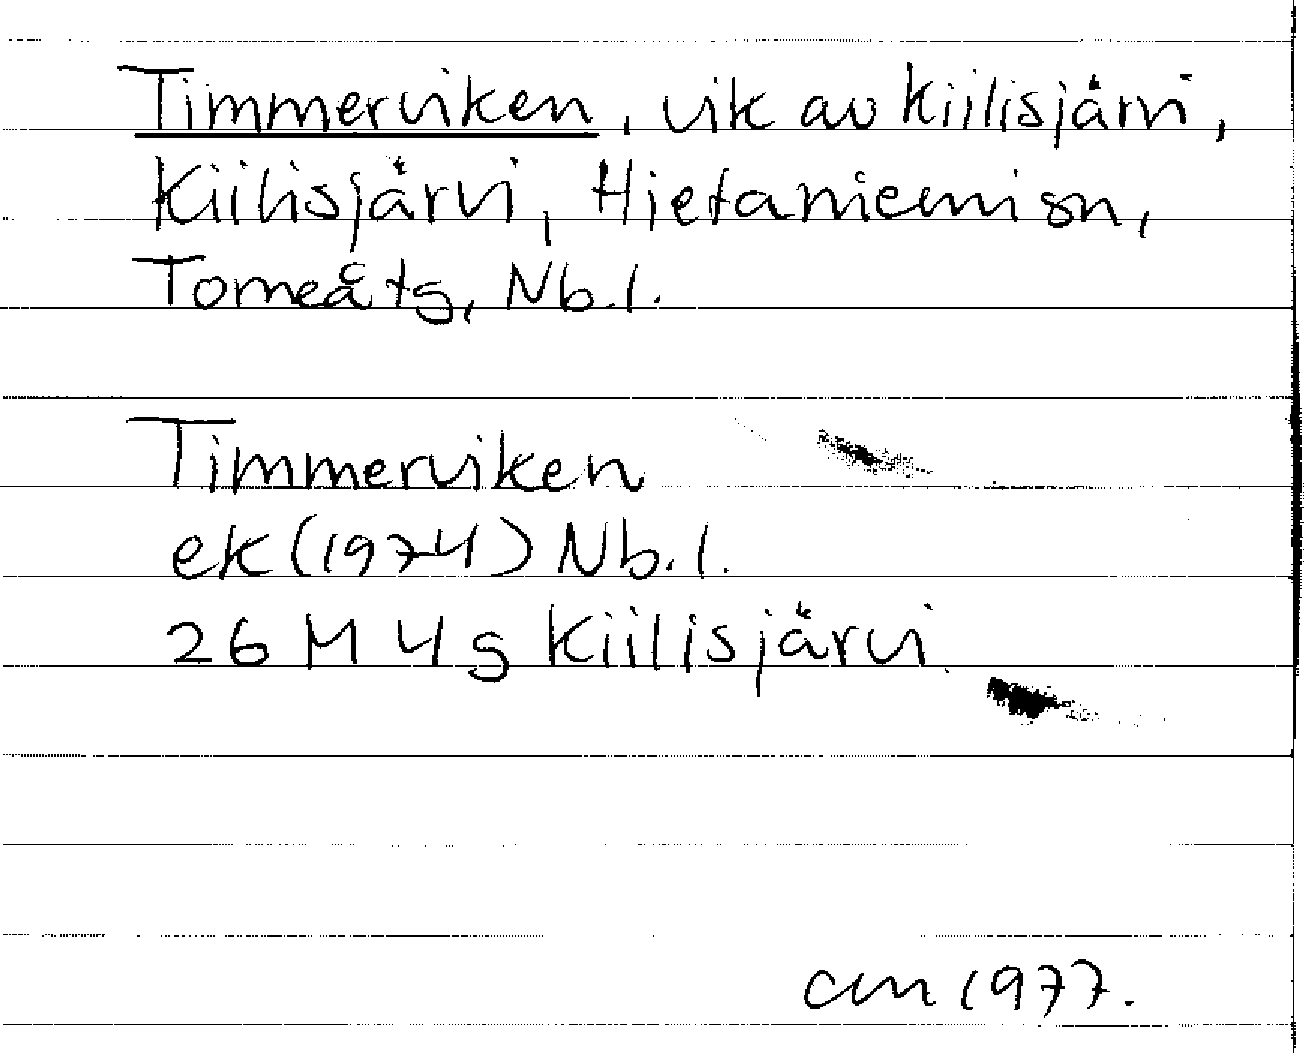 Timmerviken, vik av Kiilisjärvi,
Kiilisjärvi, Hietaniemi sn,
Torneå tg, Nb.l.
Timmerviken
ek (1974) Nb.l.
26 M 4 g Kiilisjärvi
cm 1977.